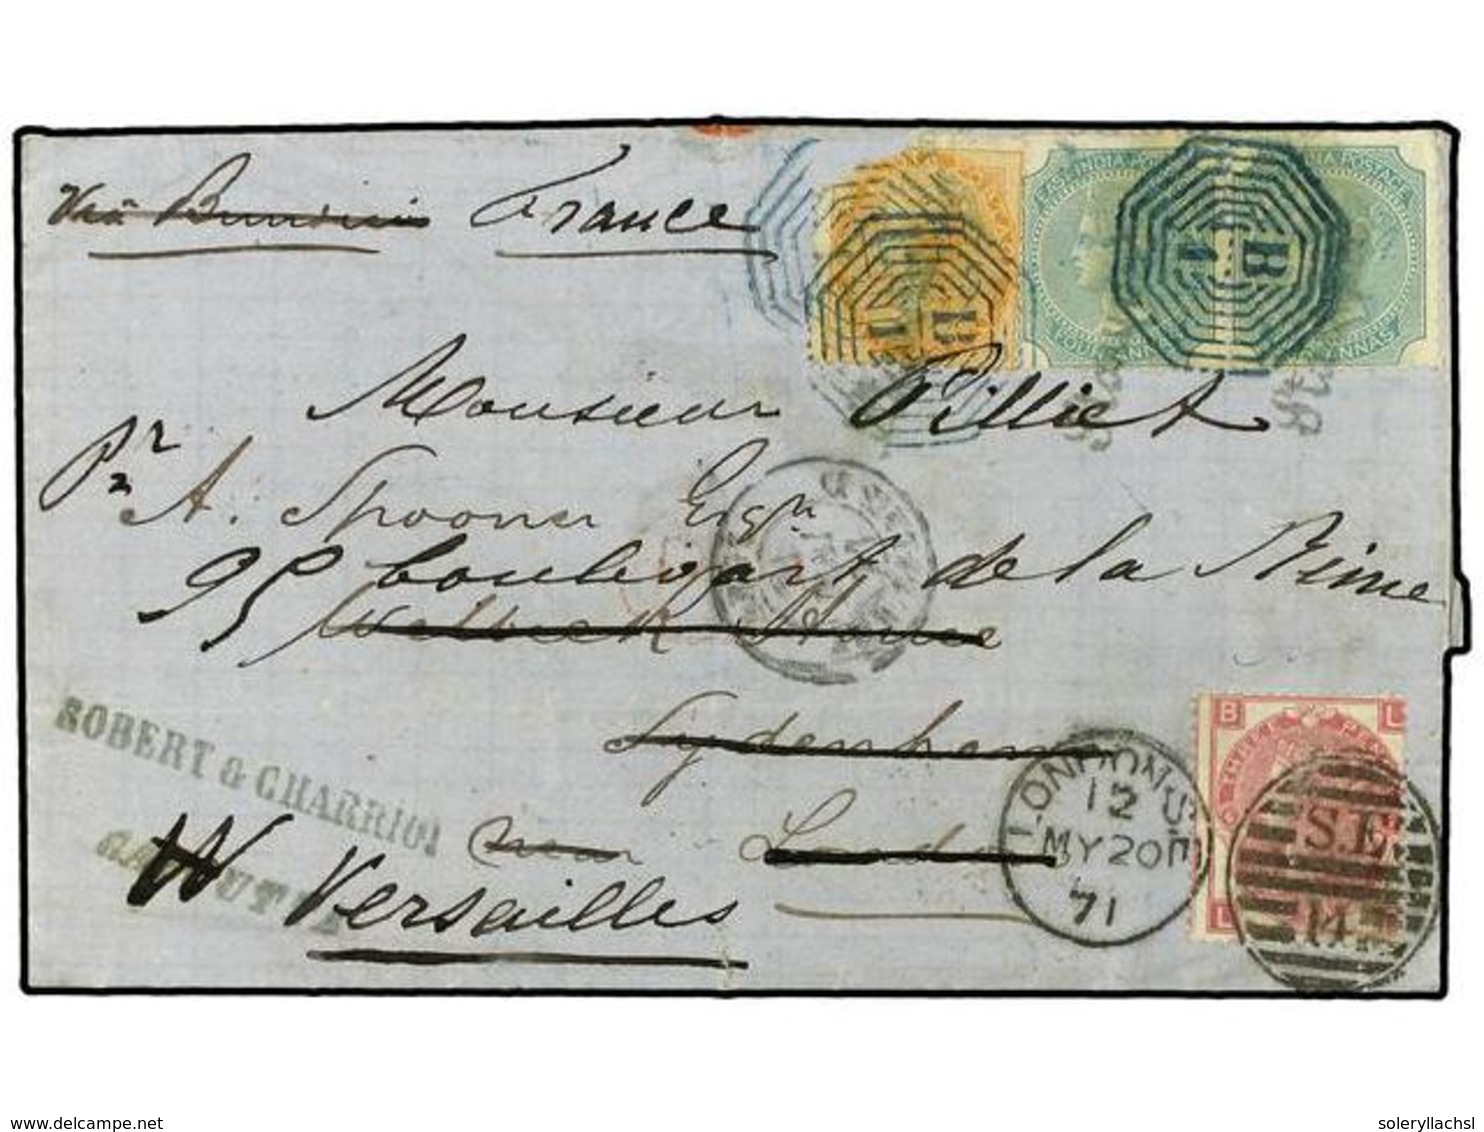 Via Brindisi France
EAST INDIA POSTAGE
INDIA POSTAGE
FOUR ANNAS
ANNAS
B
1
B
1
Monsieur Pilliet
pr A. Spooner Esqr
95 boulevart de la Reine
Welbeck House
Sydenham
near London
W Versailles
ROBERT & CHARRIOL
CALCUTTA
LONDON S.E
12
MY 20
71
B L
L
S.E
14
www.delcampe.net
soleryllachsl